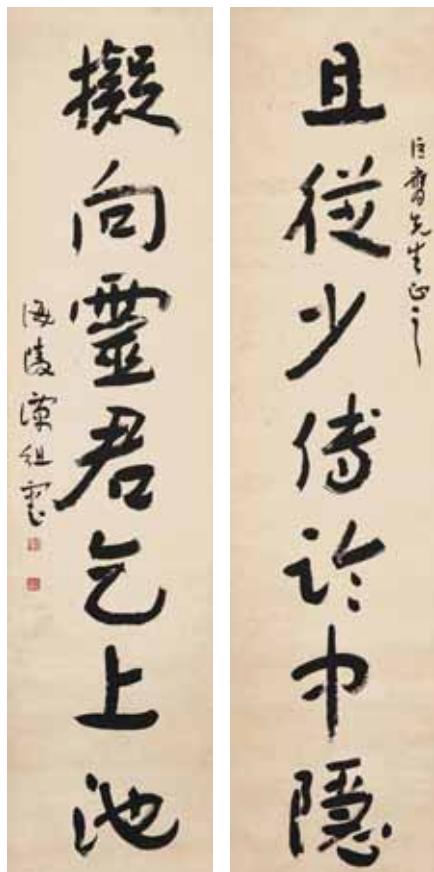 且從少傅論中隱
齋先生正之
擬向靈君乞上池
海陵譚組雲